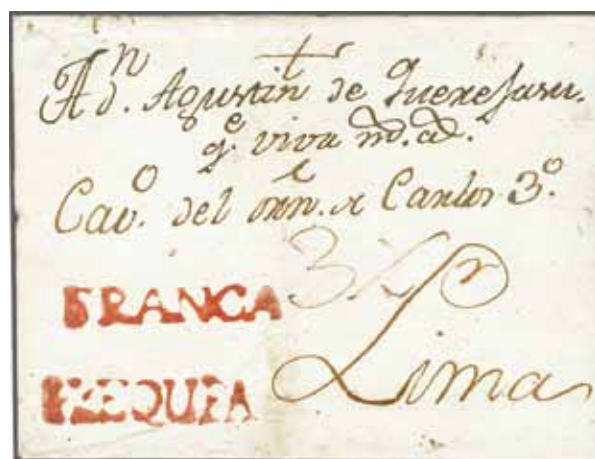 A Dn. Agustin de Querejasu.
qe. viva ms. as.
Cavo. del orn. de Carlos 3o.
FRANCA
Lima